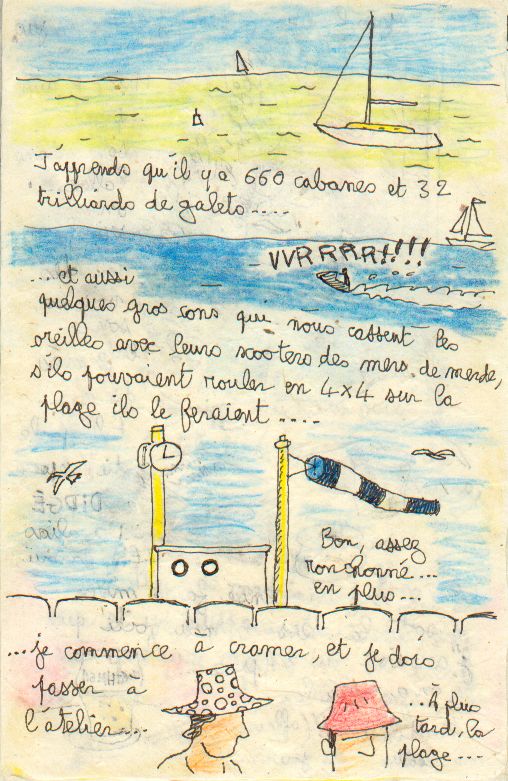 J'apprends qu'il y a 660 cabanes et 32
trilliards de galets....
VVRRRR!!!!
...et aussi
quelques gros cons qui nous cassent les
oreilles avec leurs scooters des mers de merde,
s'ils pouvaient rouler en 4x4 sur la
plage ils le feraient....
Bon, assez
ronchonné...
en plus...
...je commence à cramer, et je dois
passer à
l'atelier...
..À plus
tard, la
plage...